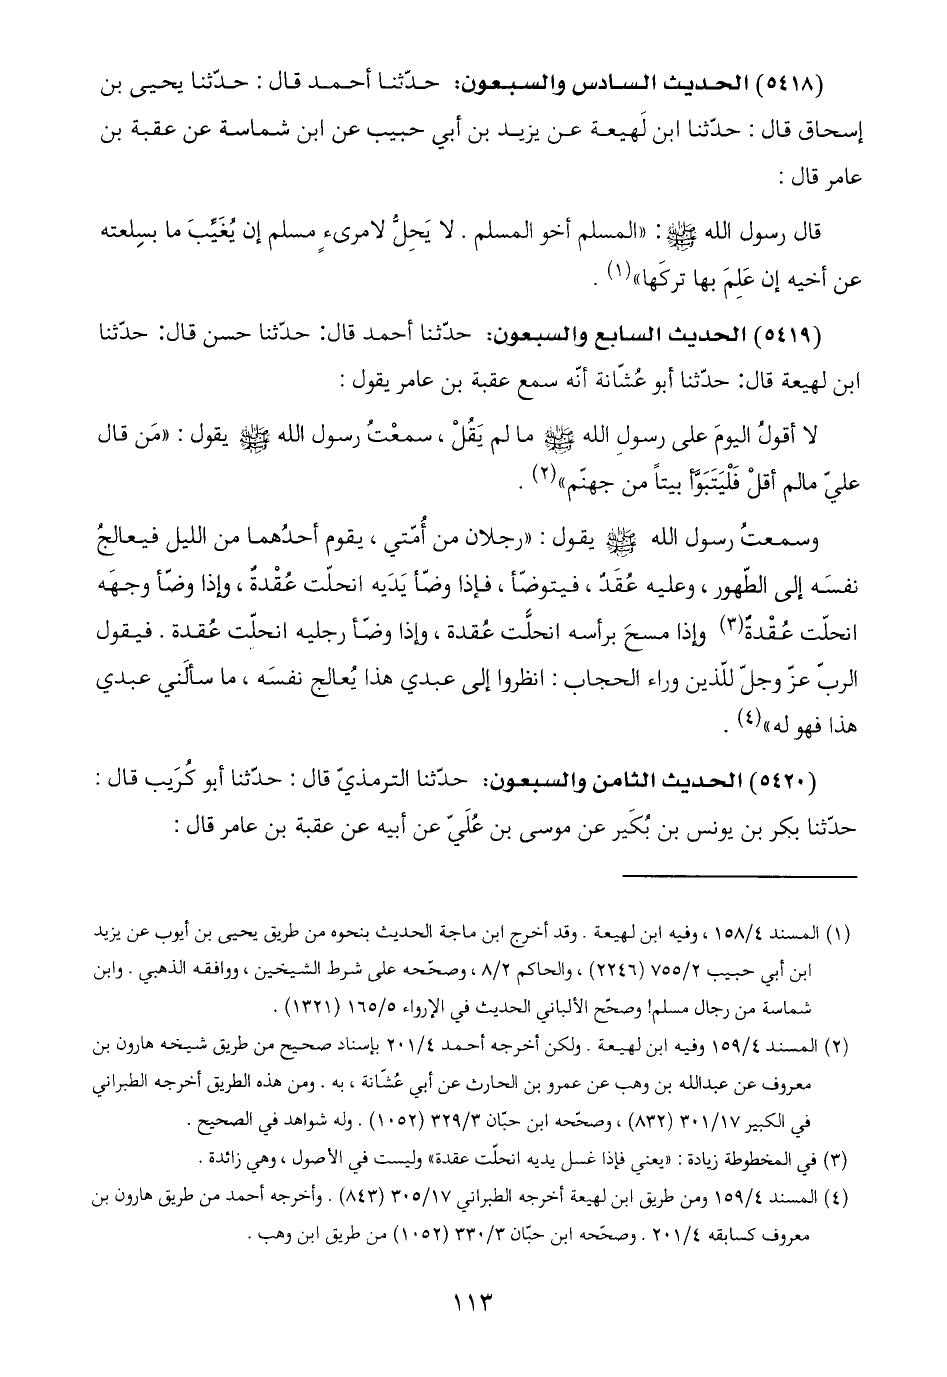 (٥٤١٨) الحديث السادس والسبعون: حدّثنا أحمد قال : حدّثنا يحيى بن
إسحاق قال : حدّثنا ابن لَهيعة عن يزيد بن أبي حبيب عن ابن شماسة عن عقبة بن
عامر قال :
قال رسول الله ﷺ: «المسلم أخو المسلم . لا يَحِلُّ لامرىءٍ مسلم إن يُغَيِّبَ ما بسِلعته
عن أخيه إن عَلِمَ بها تركَها»(١) .
(٥٤١٩) الحديث السابع والسبعون: حدّثنا أحمد قال: حدّثنا حسن قال: حدّثنا
ابن لهيعة قال: حدّثنا أبو عُشّانة أنّه سمع عقبة بن عامر يقول :
لا أقولُ اليومَ على رسولِ الله ﷺ ما لم يَقُلْ ، سمعْتُ رسول الله ﷺ يقول : «مَن قال
عليّ مالم أقلْ فَلْيَتَبَوَّأ بيتاً من جهنّم»(٢) .
وسمعتُ رسول الله ﷺ يقول : «رجلان من أُمّتي ، يقوم أحدُهما من الليل فيعالجُ
نفسَه إلى الطّهور ، وعليه عُقَدٌ ، فيتوضّأ ، فإذا وضّأ يَدَيه انحلّت عُقْدةٌ ، وإذا وضّأ وجهَه
انحلّت عُقْدةٌ(٣) وإذا مسحَ برأسه انحلَّت عُقدة ، وإذا وضّأ رجليه انحلّت عُقدة . فيقول
الربّ عزّ وجلّ للّذين وراء الحجاب : انظروا إلى عبدي هذا يُعالج نفسَه ، ما سألَني عبدي
هذا فهو له»(٤) .
(٥٤٢٠) الحديث الثامن والسبعون: حدّثنا الترمذيّ قال : حدّثنا أبو كُرَيب قال :
حدّثنا بكر بن يونس بن بُكَير عن موسى بن عُلَيّ عن أبيه عن عقبة بن عامر قال :
(١) المسند ١٥٨/٤ ، وفيه ابن لهيعة . وقد أخرج ابن ماجة الحديث بنحوه من طريق يحيى بن أيوب عن يزيد
ابن أبي حبيب ٧٥٥/٢ (٢٢٤٦) ، والحاكم ٨/٢ ، وصحّحه على شرط الشيخين ، ووافقه الذهبي . وابن
شماسة من رجال مسلم! وصحّح الألباني الحديث في الإرواء ١٦٥/٥ (١٣٢١) .
(٢) المسند ١٥٩/٤ وفيه ابن لهيعة . ولكن أخرجه أحمد ٢٠١/٤ بإسناد صحيح من طريق شيخه هارون بن
معروف عن عبدالله بن وهب عن عمرو بن الحارث عن أبي عُشّانة ، به . ومن هذه الطريق أخرجه الطبراني
في الكبير ٣٠١/١٧ (٨٣٢) ، وصحّحه ابن حبّان ٣٢٩/٣ (١٠٥٢) . وله شواهد في الصحيح .
(٣) في المخطوطة زيادة : «يعني فإذا غسل يديه انحلّت عقدة» وليست في الأصول ، وهي زائدة .
(٤) المسند ١٥٩/٤ ومن طريق ابن لهيعة أخرجه الطبراني ٣٠٥/١٧ (٨٤٣) . وأخرجه أحمد من طريق هارون بن
معروف كسابقه ٢٠١/٤ . وصحّحه ابن حبّان ٣٣٠/٣ (١٠٥٢) من طريق ابن وهب .
١١٣